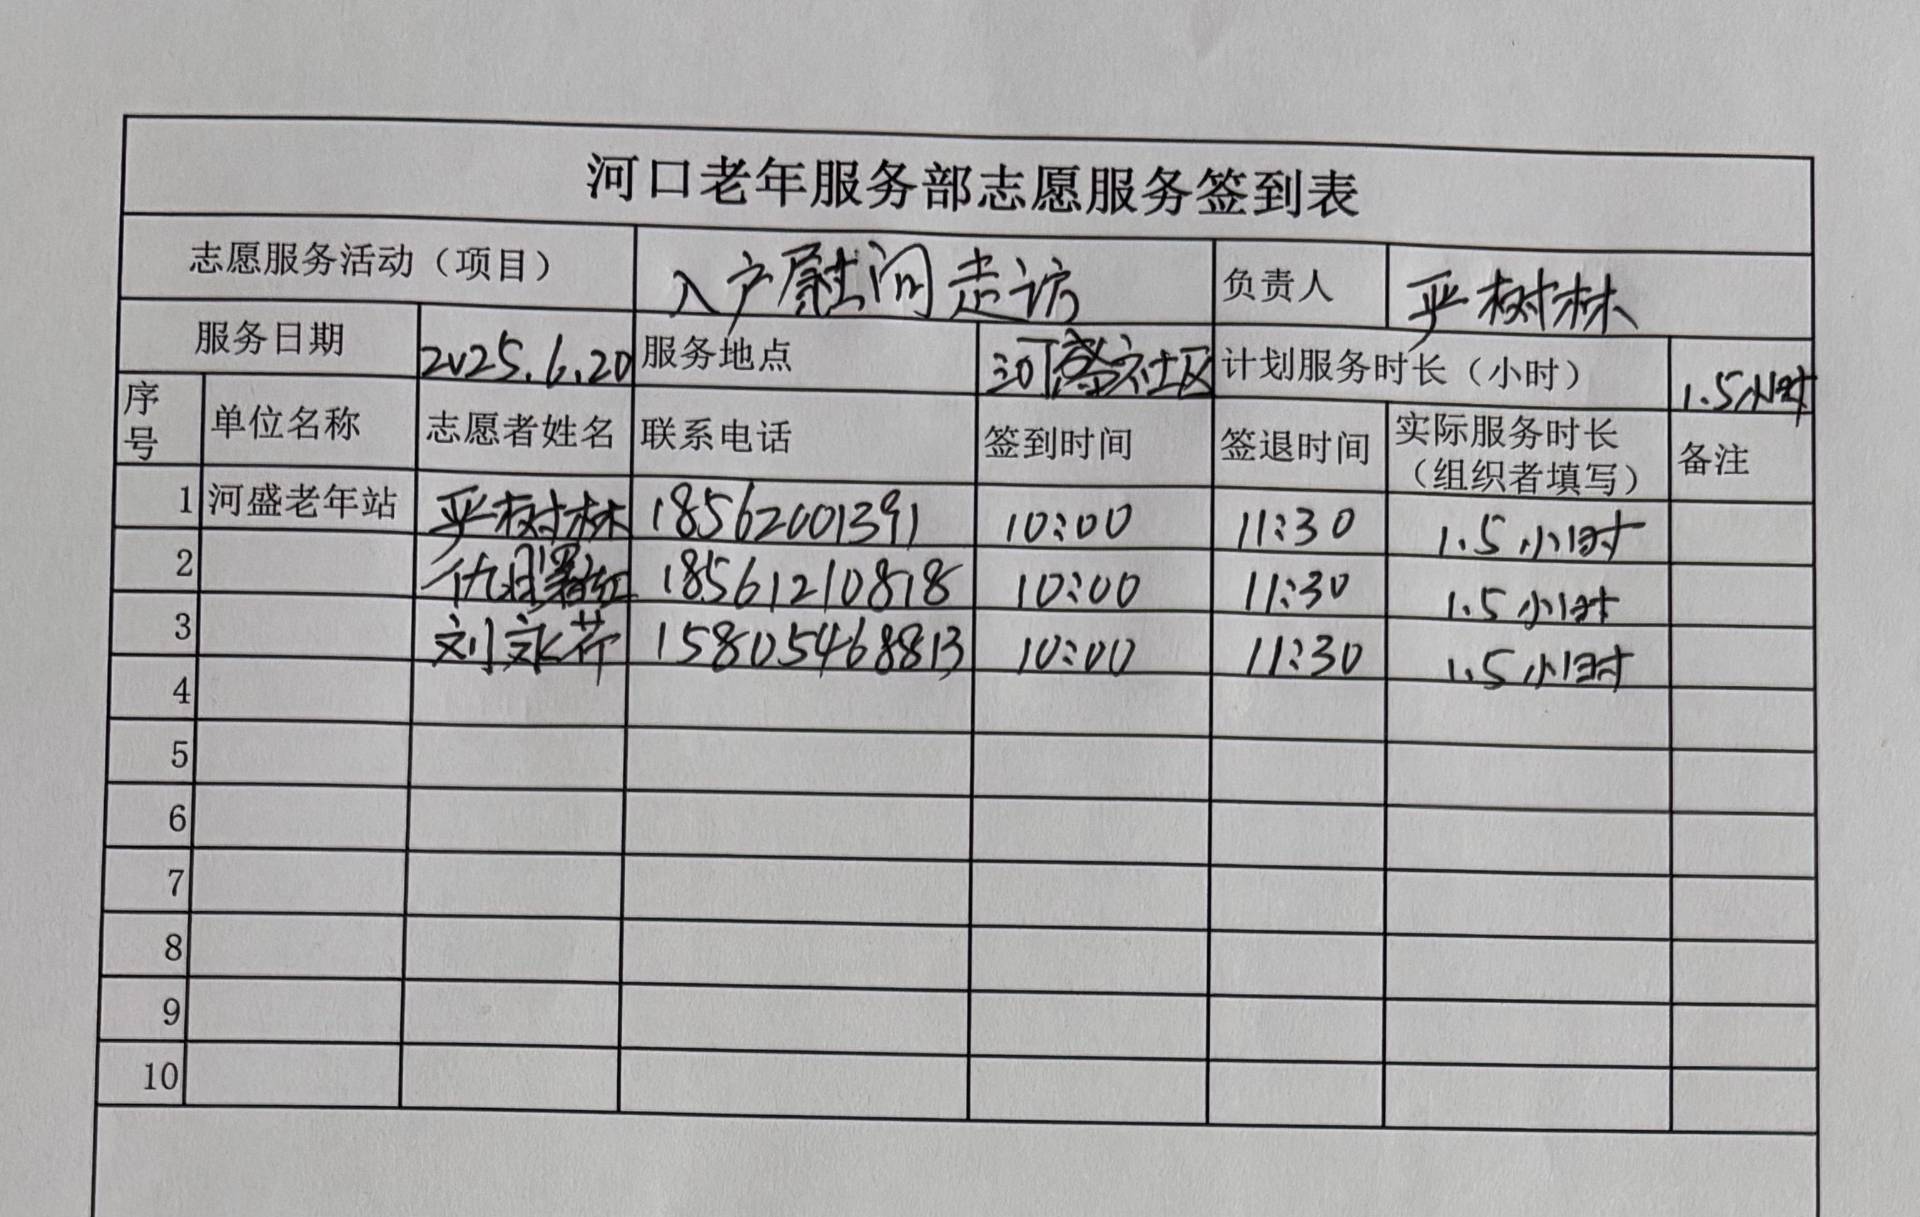 河口老年服务部志愿服务签到表
志愿服务活动（项目） 入户慰问走访 负责人 严树林
服务日期 2025.6.20 服务地点 河盛社区 计划服务时长（小时） 1.5小时
序号 单位名称 志愿者姓名 联系电话 签到时间 签退时间 实际服务时长（组织者填写） 备注
1 河盛老年站 严树林 18562001391 10:00 11:30 1.5小时
2 18561210818 10:00 11:30 1.5小时
3 刘永芹 15805468813 10:00 11:30 1.5小时
4
5
6
7
8
9
10